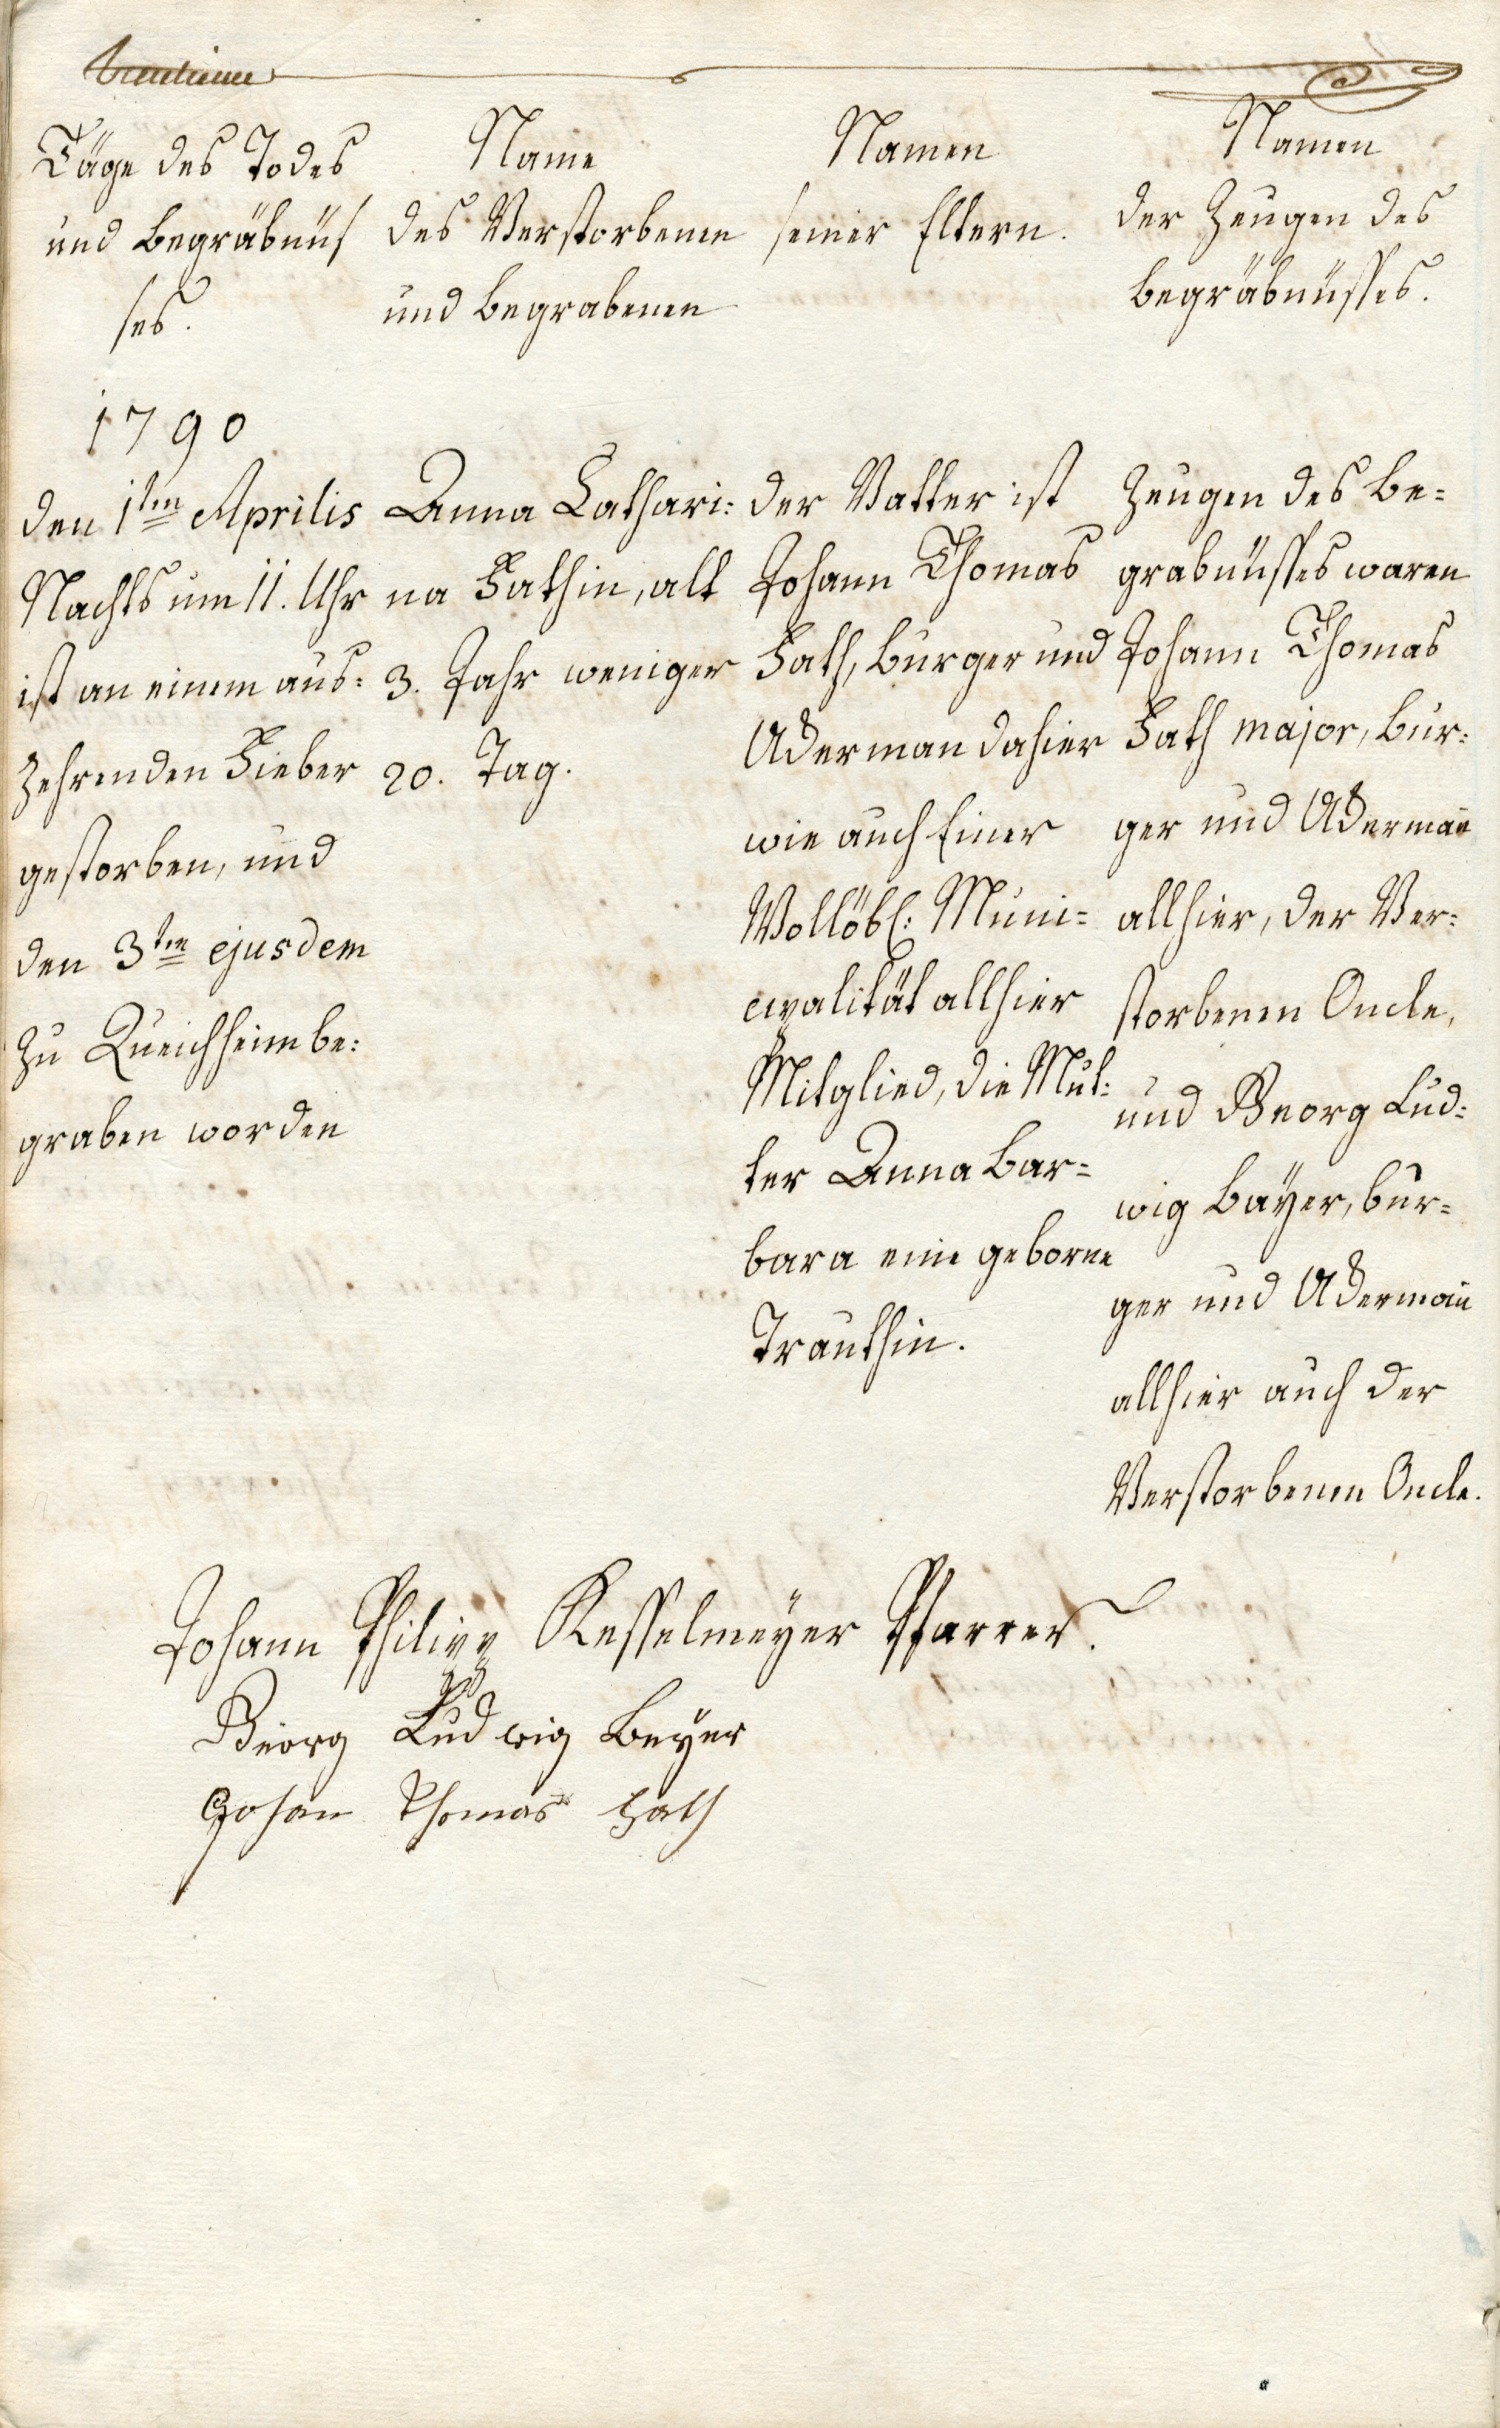 Täge des Todes
und Begräbnüs
ses.
Name
des Verstorbenen
und Begrabenen
Namen
seiner Eltern.
Namen
der Zeugen des
Begräbnüsses.
1790
den 1ten Aprilis
Nachts um 11. Uhr
ist an einem aus:
zehrenden Fieber
gestorben, und
den 3ten ejusdem
zu Queichheim be:
graben worden
Anna Cathari:
na Fathin, alt
3. Jahr weniger
20. Tag.
der Vatter ist
Johann Thomas
Fath, Burger und
Ackerman dahier
wie auch Einer
Wollöbl: Muni=
cipalität allhier
Mitglied, die Mut:
ter Anna Bar=
bara eine geborne
Trauthin.
Zeugen des Be=
grabnüsses waren
Johann Thomas
Fath major, Bur:
ger und Ackerman
allhier, der Ver:
storbenen Oncle,
und Georg Lud:
wig Bäyer, Bur=
ger und Ackerman
allhier auch der
Verstorbenen Oncle.
Johann Philipp Kesselmeyer Pfarrer.
Georg Ludwig Beyer
Johan Thomas Fath